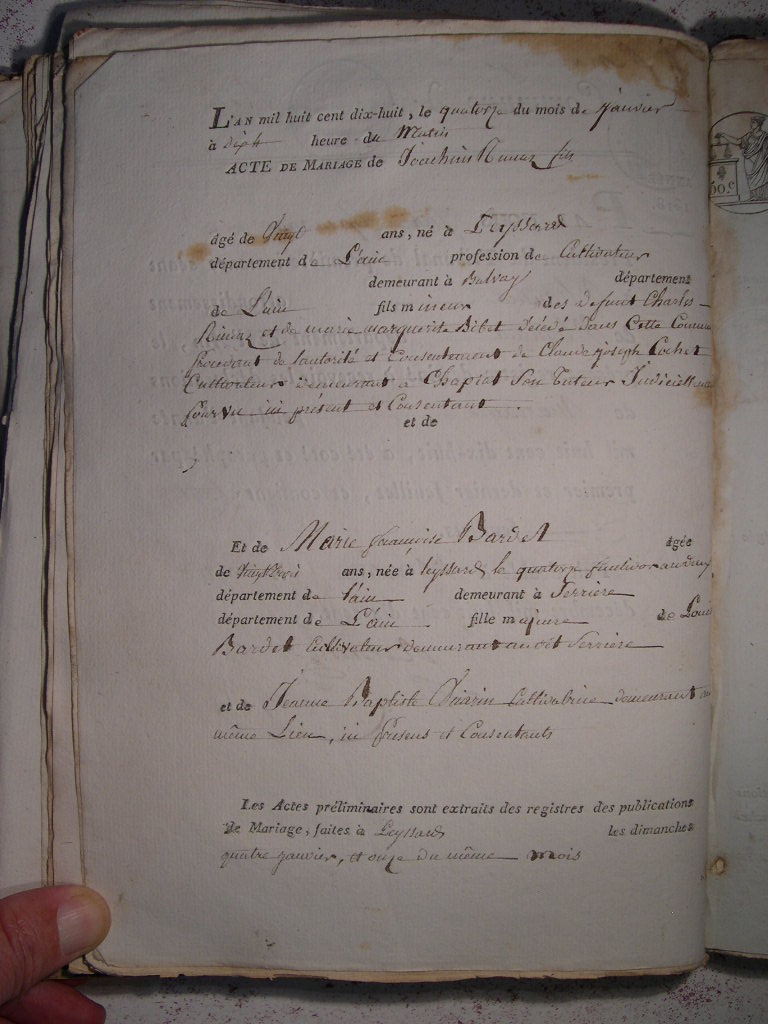 L'AN mil huit cent dix-huit, le quatorze du mois de janvier
à dix h heure du Matin
ACTE DE MARIAGE de Joachim fils
âgé de Vingt ans, né à Leyssard
département de L'ain profession de Cultivateur
demeurant à Bolvay département
de L'ain fils mineur des defunt Charles
et de marie marguerite Bibet décédé dans Cette Commune
procedant de lautorité et Consentement de Claude joseph Cochet
Cultivateur demeurant a Chapiat Son Tuteur Judiciellement
Pourvu ici présent et Consentant.
et de
Et de Marie françoise Bardet âgée
de Vingt trois ans, née à leyssard le quatorze
département de l'ain demeurant à Serriere
département de L'ain fille majeure de Louis
Bardet Cultivateur demeurant audit Serriere
et de Jeanne Baptiste Cultivatrice demeurant au
même Lieu, ici présens et Consentants
Les Actes préliminaires sont extraits des registres des publications
de Mariage, faites à Leyssard les dimanches
quatre janvier, et onze du même mois
50 c.